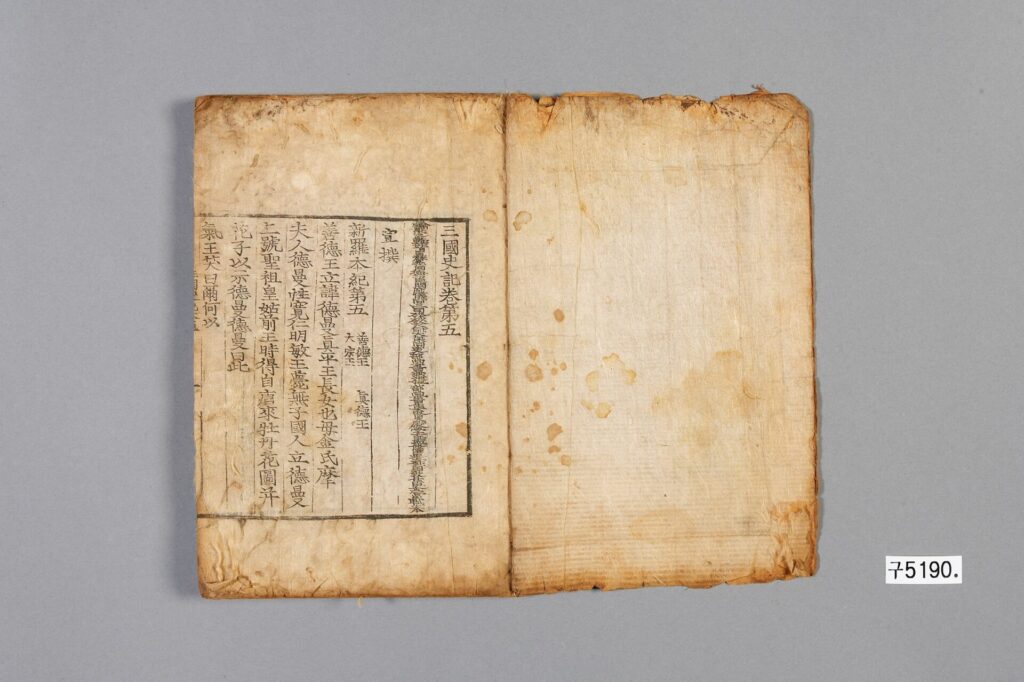 三國史記卷第五
宣撰
新羅本紀第五 善德王 眞德王 太宗王
善德王立諱德曼眞平王長女也母金氏摩
夫人德曼性寬仁明敏王薨無子國人立德曼
上號聖祖皇姑前王時得自唐來牡丹花圖幷
花子以示德曼德曼曰此
氣王笑曰爾何以
구5190.